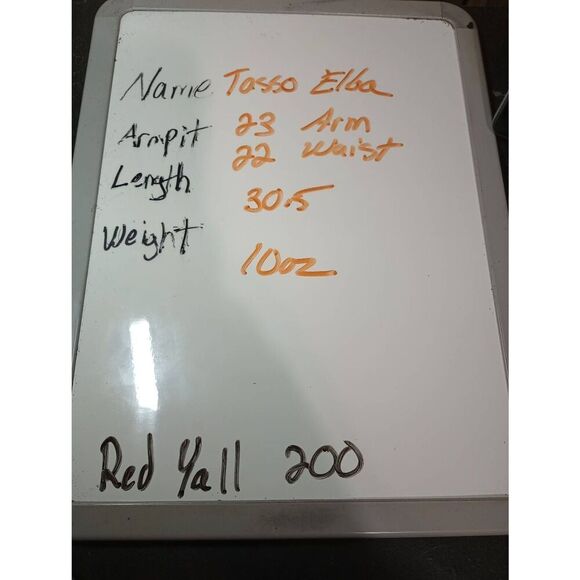 Name Tasso Elba
Armpit 23 Arm
22 Waist
Length 30.5
Weight 10oz
Red Yall 200